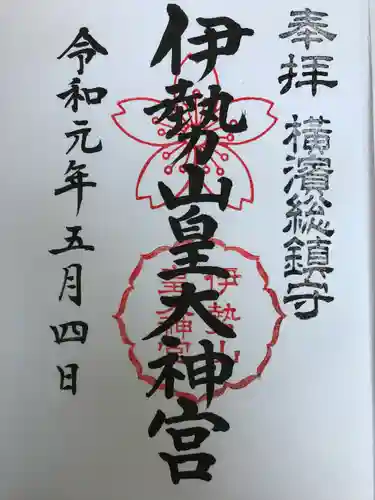 奉拝
横濱総鎮守
伊勢山皇大神宮
伊勢山
皇大神宮
令和元年五月四日